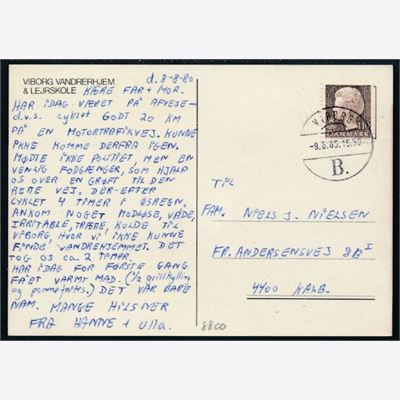 VIBORG VANDRERHJEM
& LEJRSKOLE
d. 8-8-80
KÆRE FAR + MOR.
HAR IDAG VÆRET PÅ AFVEJE-
d.v.s. cyklet GODT 20 KM
PÅ EN MOTORTRAFIKVEJ. KUNNE
IKKE KOMME DERFRA IGEN.
MØDTE IKKE POLITIET, MEN EN
VENLIG FODGÆNGER, SOM HJALP
OS OVER EN GRØFT TIL DEN
RETE VEJ. DER-EFTER
CYKLET 4 TIMER I ØSREGN.
ANKOM NOGET MODLØSE, VÅDE,
IRRITABLE, TRÆTE, KOLDE TIL
VIBORG, HVOR VI IKKE KUNNE
FINDE VANDREHJEMMET. DET
TOG OS CA. 2 TIMER.
HAR IDAG FOR FØRSTE GANG
FÅET VARMT MAD. (1/2 grillkylling
og pommefrites.) DET VAR BARE
NAM. MANGE HILSNER
FRA HANNE + Ulla.
DANMARK
-9.8.80.15.50
B.
TIL
FAM. NIELS J. NIELSEN
FR. ANDERSENSVEJ 8B I
4400 KALB.
8800